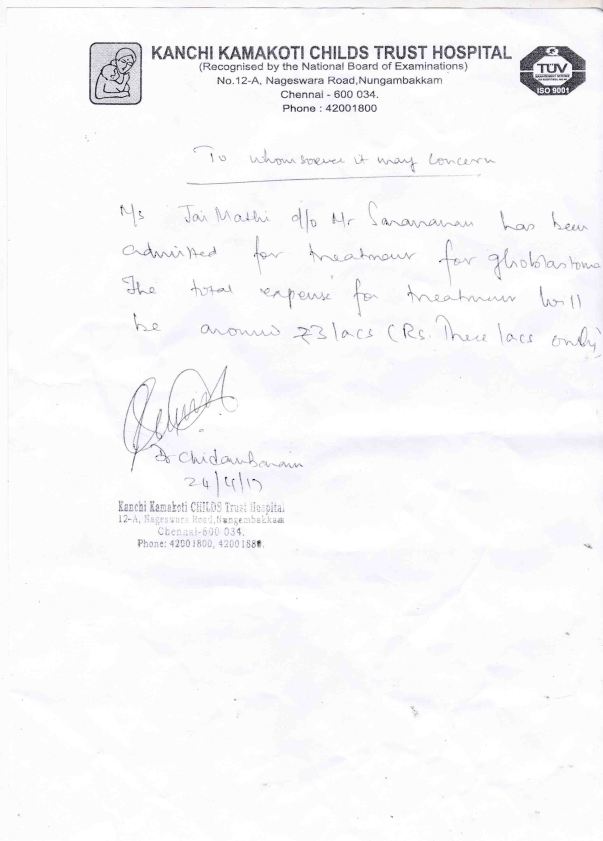 KANCHI KAMAKOTI CHILDS TRUST HOSPITAL
(Recognised by the National Board of Examinations)
No.12-A, Nageswara Road,Nungambakkam
Chennai - 600 034.
Phone : 42001800
TÜV
ISO 9001
To whomsoever it may concern
M/s Jai Mathi d/o Mr Saravanan has been
admitted for treatment for glioblastoma
The total expense for treatment will
be around ₹3lacs (Rs. Three lacs only)
Dr Chidambaram
24/4/17
Kanchi Kamakoti CHILDS Trust Hospital
12-A, Nageswara Road,Nungambakkam
Chennai-600 034.
Phone: 42001800, 4200188